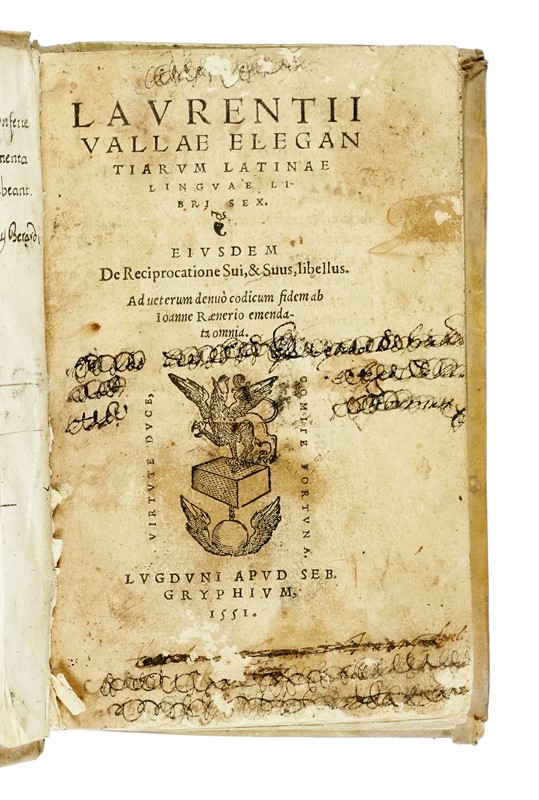 onferre
menta
beant.
Berard
LAVRENTII
VALLAE ELEGAN
TIARVM LATINAE
LINGVAE LI-
BRI SEX.
EIVSDEM
De Reciprocatione Sui, & Suus, libellus.
Ad ueterum denuò codicum fidem ab
Ioanne Rænerio emenda-
ta omnia.
VIRTVTE DVCE,
COMITE FORTVNA.
LVGDVNI APVD SEB.
GRYPHIVM,
1551.